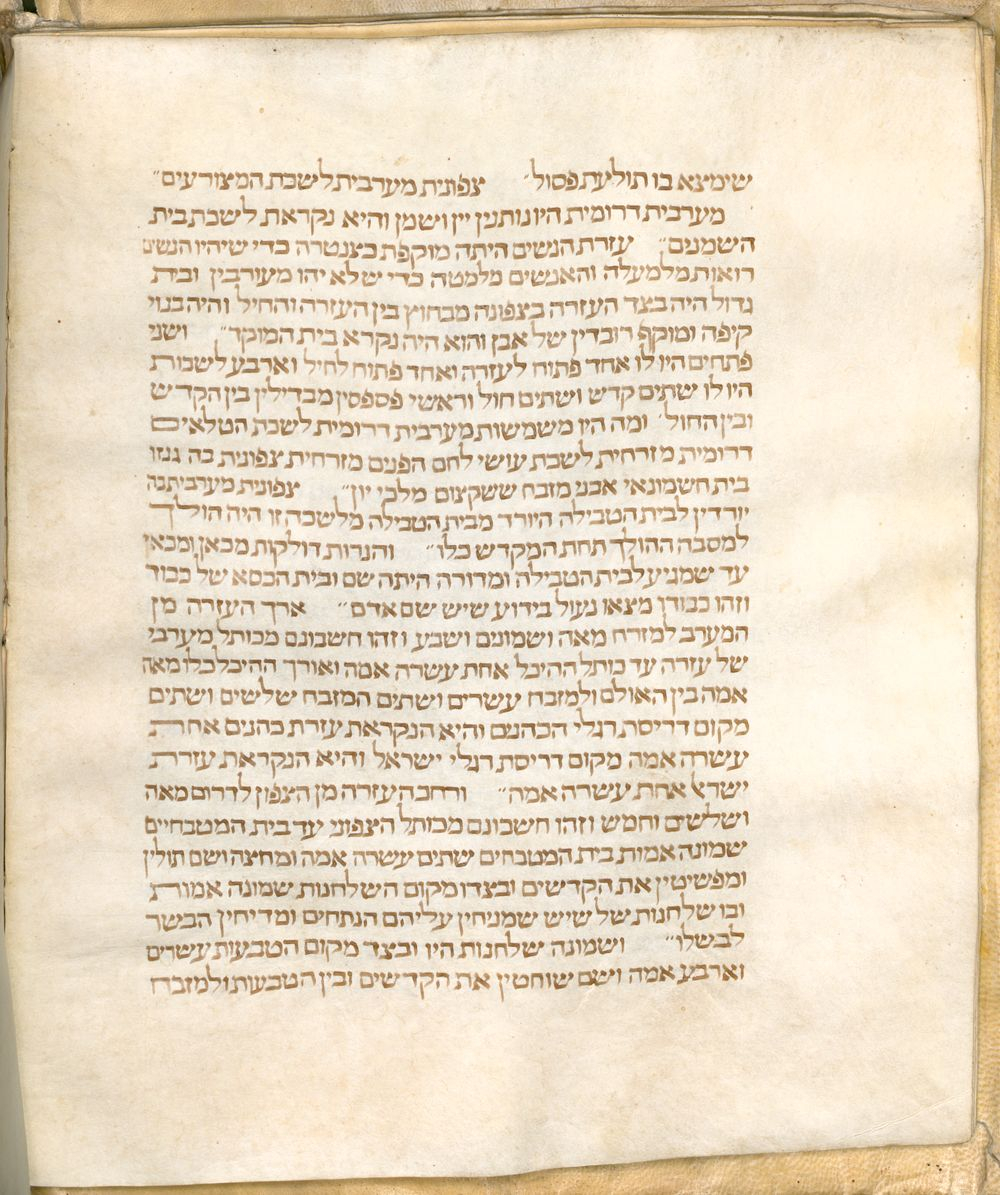 שימצא בו תולעת פסול״ צפונית מערבית לשכת המצורעים״
מערבית דרומית היו נותנין יין ושמן והיא נקראת לשכת בית
השמנים״ עזרת הנשים היתה מוקפת בצנטרה כדי שיהיו הנשים
רואות מלמעלה והאנשים מלמטה כדי שלא יהו מעורבין ובית
גדול היה בצד העזרה בצפונה מבחוץ בין העזרה והחיל והיה בנוי
קיפה ומוקף רובדין של אבן והוא היה נקרא בית המוקד״ ושני
פתחים היו לו אחד פתוח לעזרה ואחד פתוח לחיל וארבע לשכות
היו לו שתים קדש ושתים חול וראשי פספסין מבדילין בין הקדש
ובין החול׳ ומה היו משמשות מערבית דרומית לשכת הטלאים
דרומית מזרחית לשכת עושי לחם הפנים מזרחית צפונית בה גנזו
בית חשמונאי אבני מזבח ששקצום מלכי יון״ צפונית מערבית בה
יורדין לבית הטבילה היורד מבית הטבילה מלשכה זו היה הולך
למסבה ההולך תחת המקדש כלו״ והנרות דולקות מכאן ומכאן
עד שמגיע לבית הטבילה ומדורה היתה שם ובית הכסא של כבוד
וזהו כבודו מצאו נעול בידוע שיש שם אדם״ ארך העזרה מן
המערב למזרח מאה ושמונים ושבע וזהו חשבונם מכותל מערבי
של עזרה עד כותל ההיכל אחת עשרה אמה ואורך ההיכל כלו מאה
אמה בין האולם ולמזבח עשרים ושתים המזבח שלשים ושתים
מקום דריסת רגלי הכהנים והיא הנקראת עזרת כהנים אחת
עשרה אמה מקום דריסת רגלי ישראל והיא הנקראת עזרת
ישראל אחת עשרה אמה״ ורחב העזרה מן הצפון לדרום מאה
ושלשים וחמש וזהו חשבונם מכותל הצפוני עד בית המטבחיים
שמונה אמות בית המטבחים שתים עשרה אמה ומחצה ושם תולין
ומפשיטין את הקדשים ובצדו מקום השלחנות שמונה אמות
ובו שלחנות של שיש שמניחין עליהם הנתחים ומדיחין הבשר
לבשלו״ ושמונה שלחנות היו ובצד מקום הטבעות עשרים
וארבע אמה ושם שוחטין את הקדשים ובין הטבעות ולמזבח